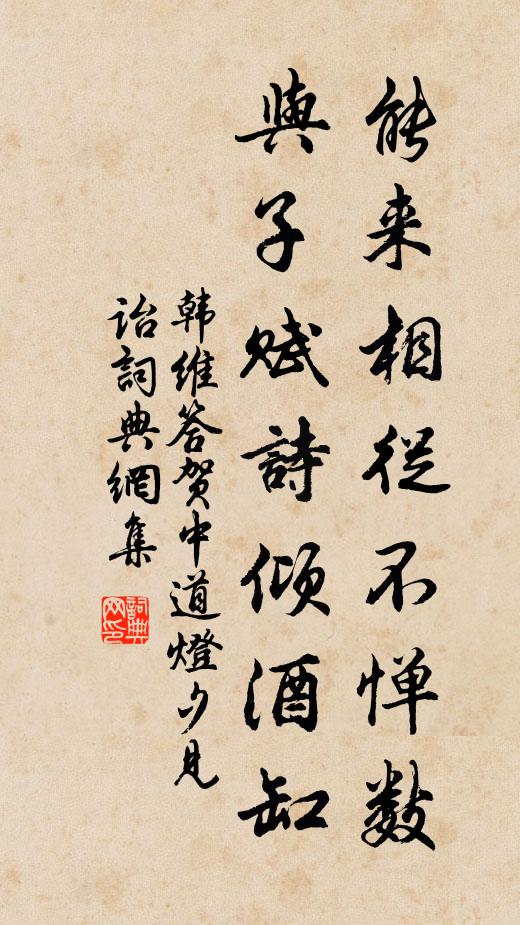 能来相從不惮数
與子赋詩倾酒缸
韩维答贺中道燈夕見
诒詞典網集
詞典网印